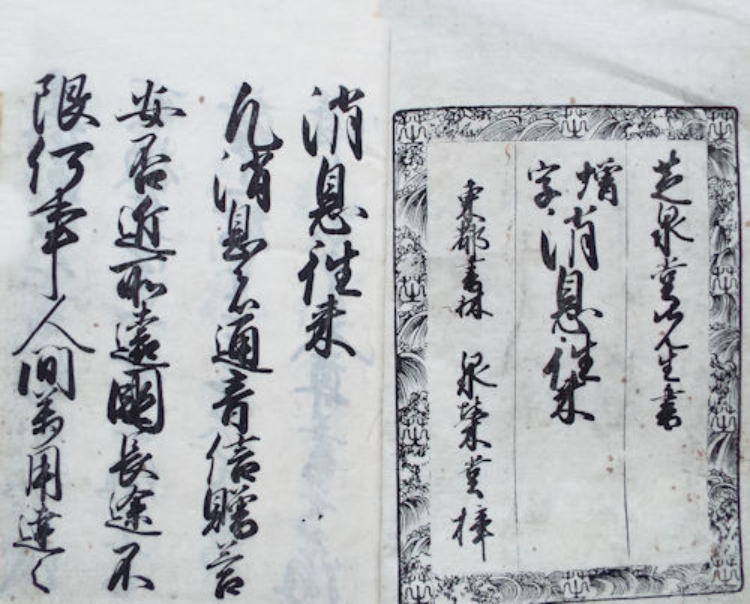 芝泉堂先生書
増字
消息往来
東都書林 泉栄堂梓
消息往来
凡消息者通音信贈答
安否近所遠國長途不
限何事人間萬用達之